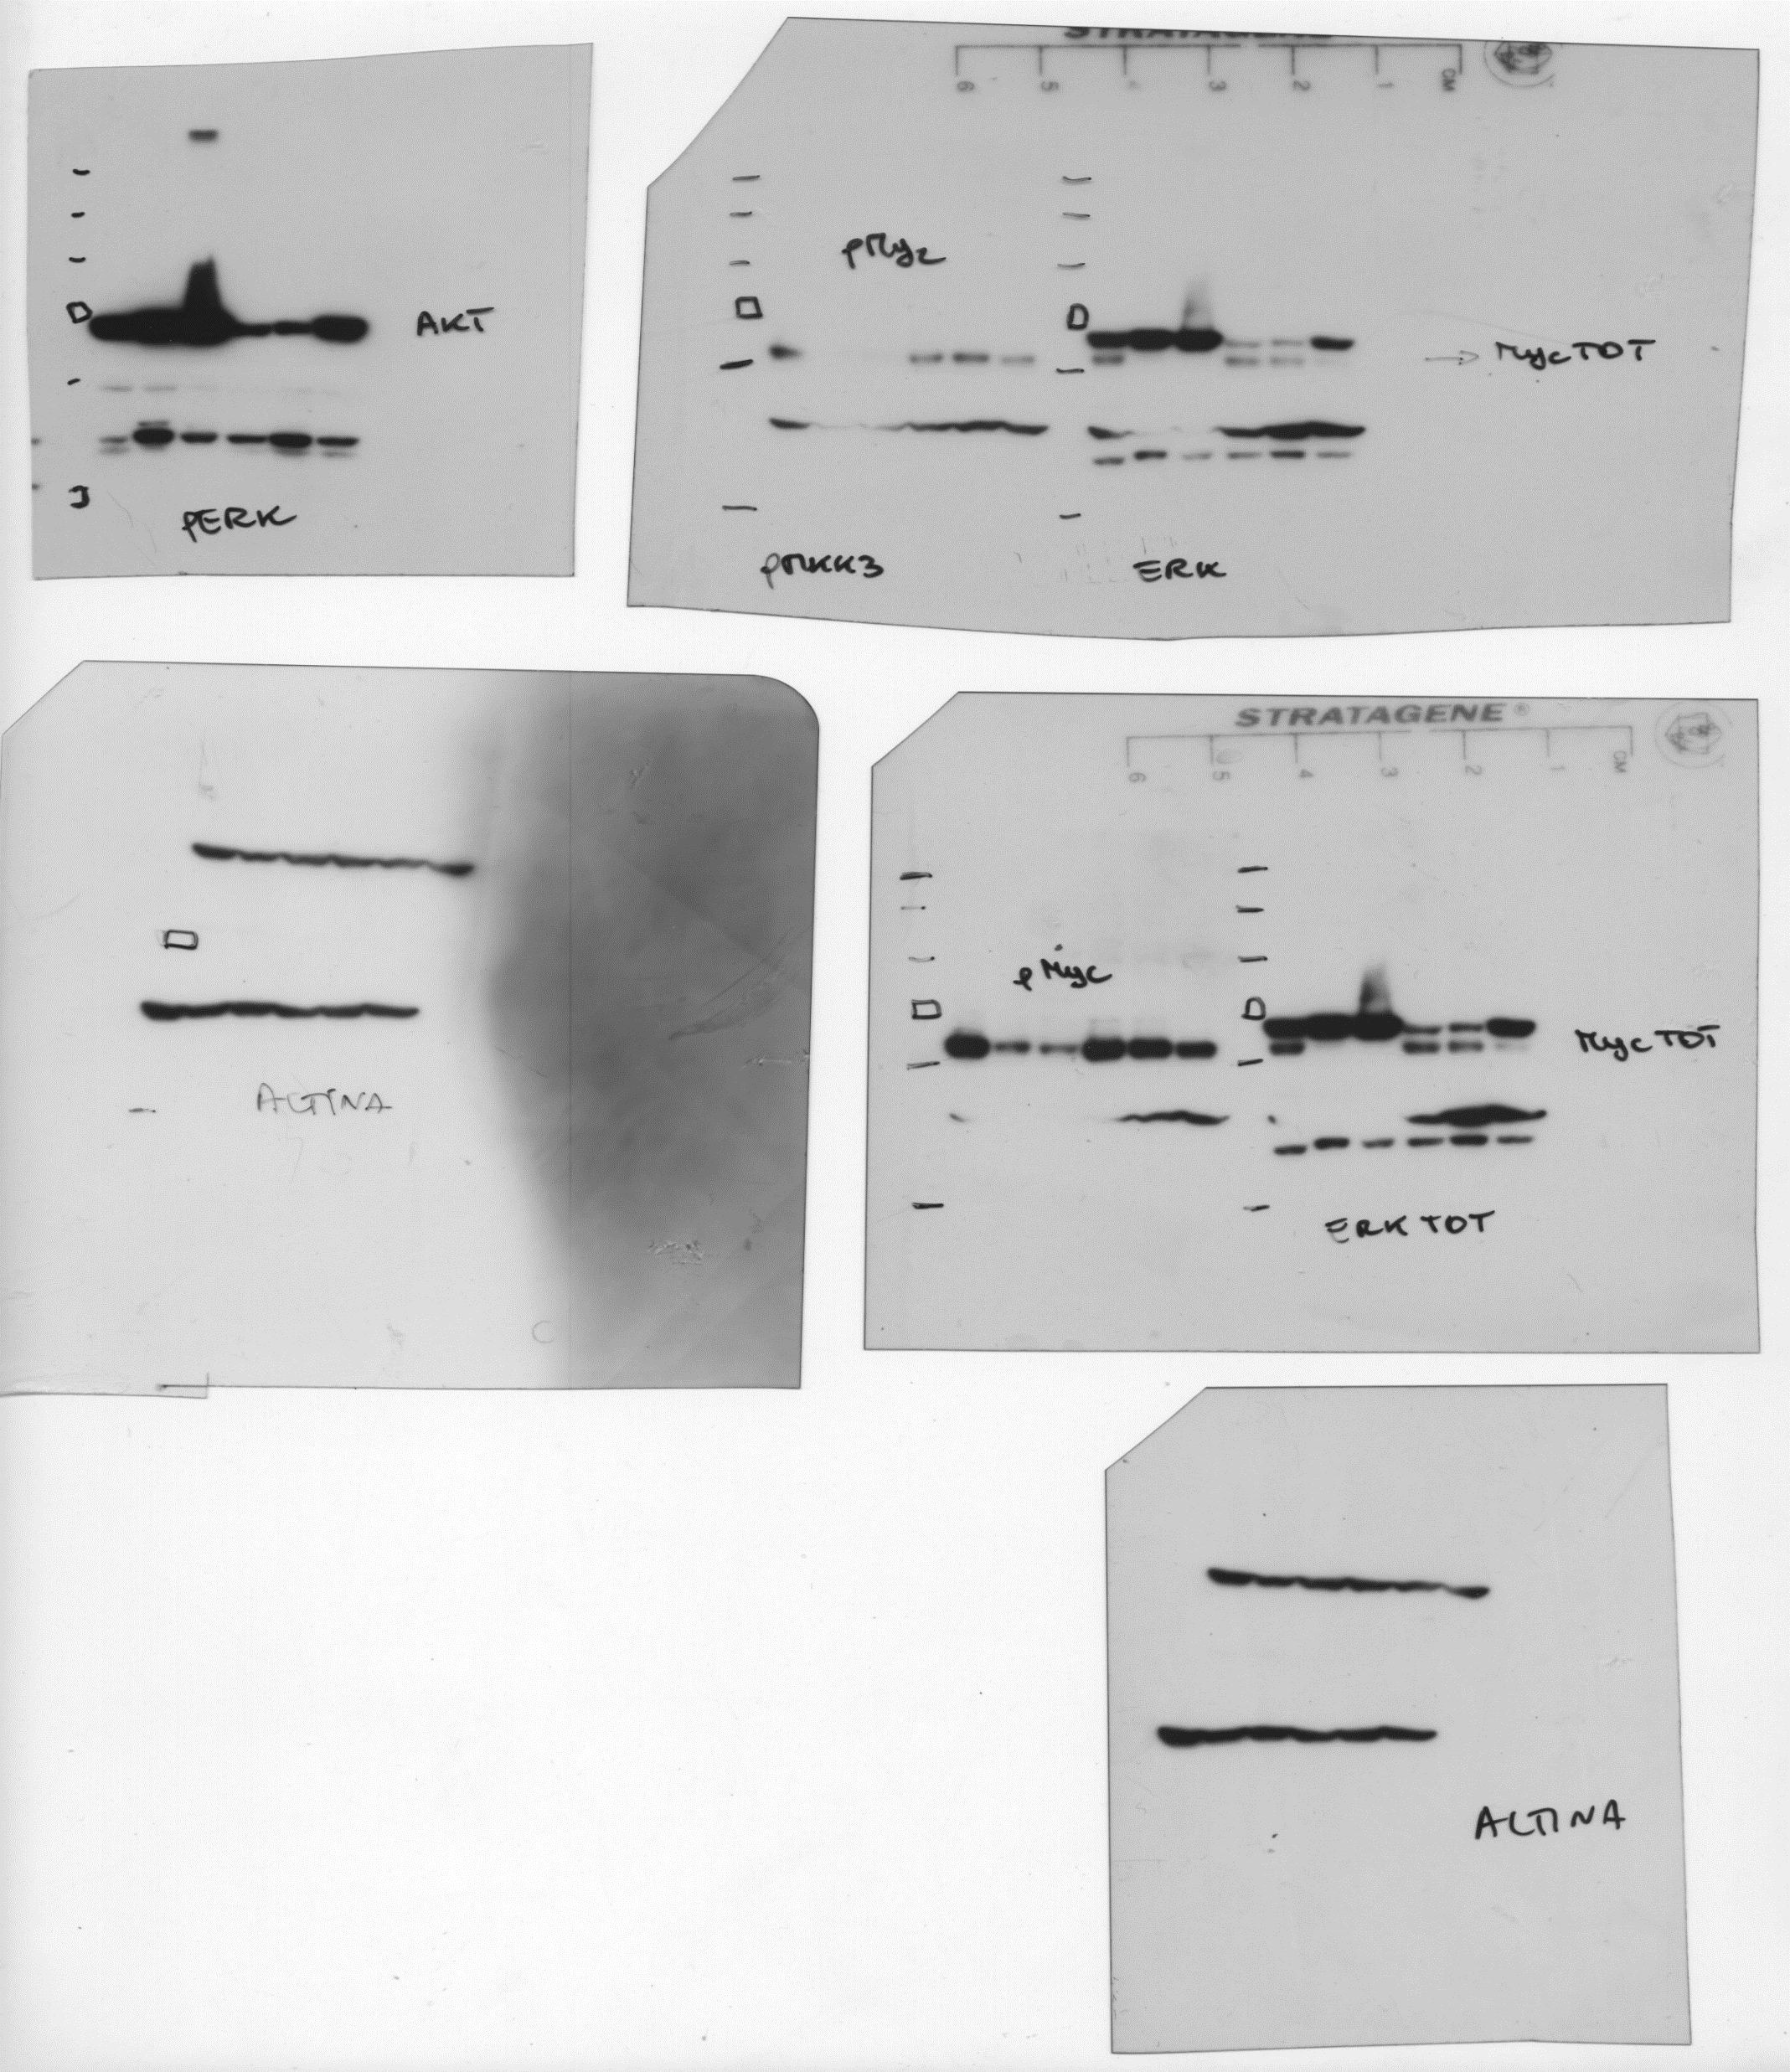 AKT
pERK
STRATAGENE
6 5 4 3 2 1 CM
pMyc
MycTOT
pMKK3
ERK
ACTINA
C
STRATAGENE®
6 5 4 3 2 1 CM
pMyc
Myc TOT
ERK TOT
ACTINA